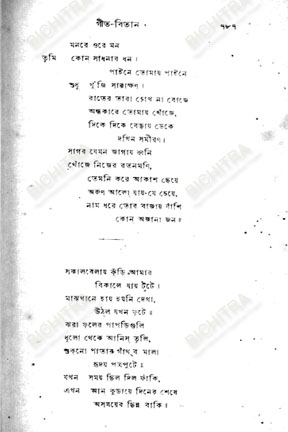 গীত-বিতান
৭৮৭
মনরে ওরে মন
তুমি কোন সাধনার ধন।
পাইনে তোমায় পাইনে
শুধু খুঁজি সারাক্ষণ।
রাতের তারা চোখ না বোজে
অন্ধকারে তোমায় খোঁজে,
দিকে দিকে বেড়ায় ডেকে
দখিন সমীরণ।
সাগর যেমন জাগায় ধ্বনি
খোঁজে নিজের রতনমণি,
তেমনি করে আকাশ ছেয়ে
অরুণ আলো যায়-যে চেয়ে,
নাম ধরে তোর বাজায় বাঁশি
কোন অজানা জন॥
সকালবেলায় কুঁড়ি আমার
বিকালে যায় টুটে।
মাঝখানে হায় হয়নি দেখা,
উঠল যখন ফুটে।
ঝরা ফুলের পাপড়িগুলি
ধুলো থেকে আনিস্ তুলি,
শুকনো পাতার গাঁথব মালা
হৃদয় পত্রপুটে।
যখন সময় ছিল দিল ফাঁকি,
এখন আন্ কুড়ায়ে দিনের শেষে
অসময়ের ছিন্ন বাকি।
BICHITRA